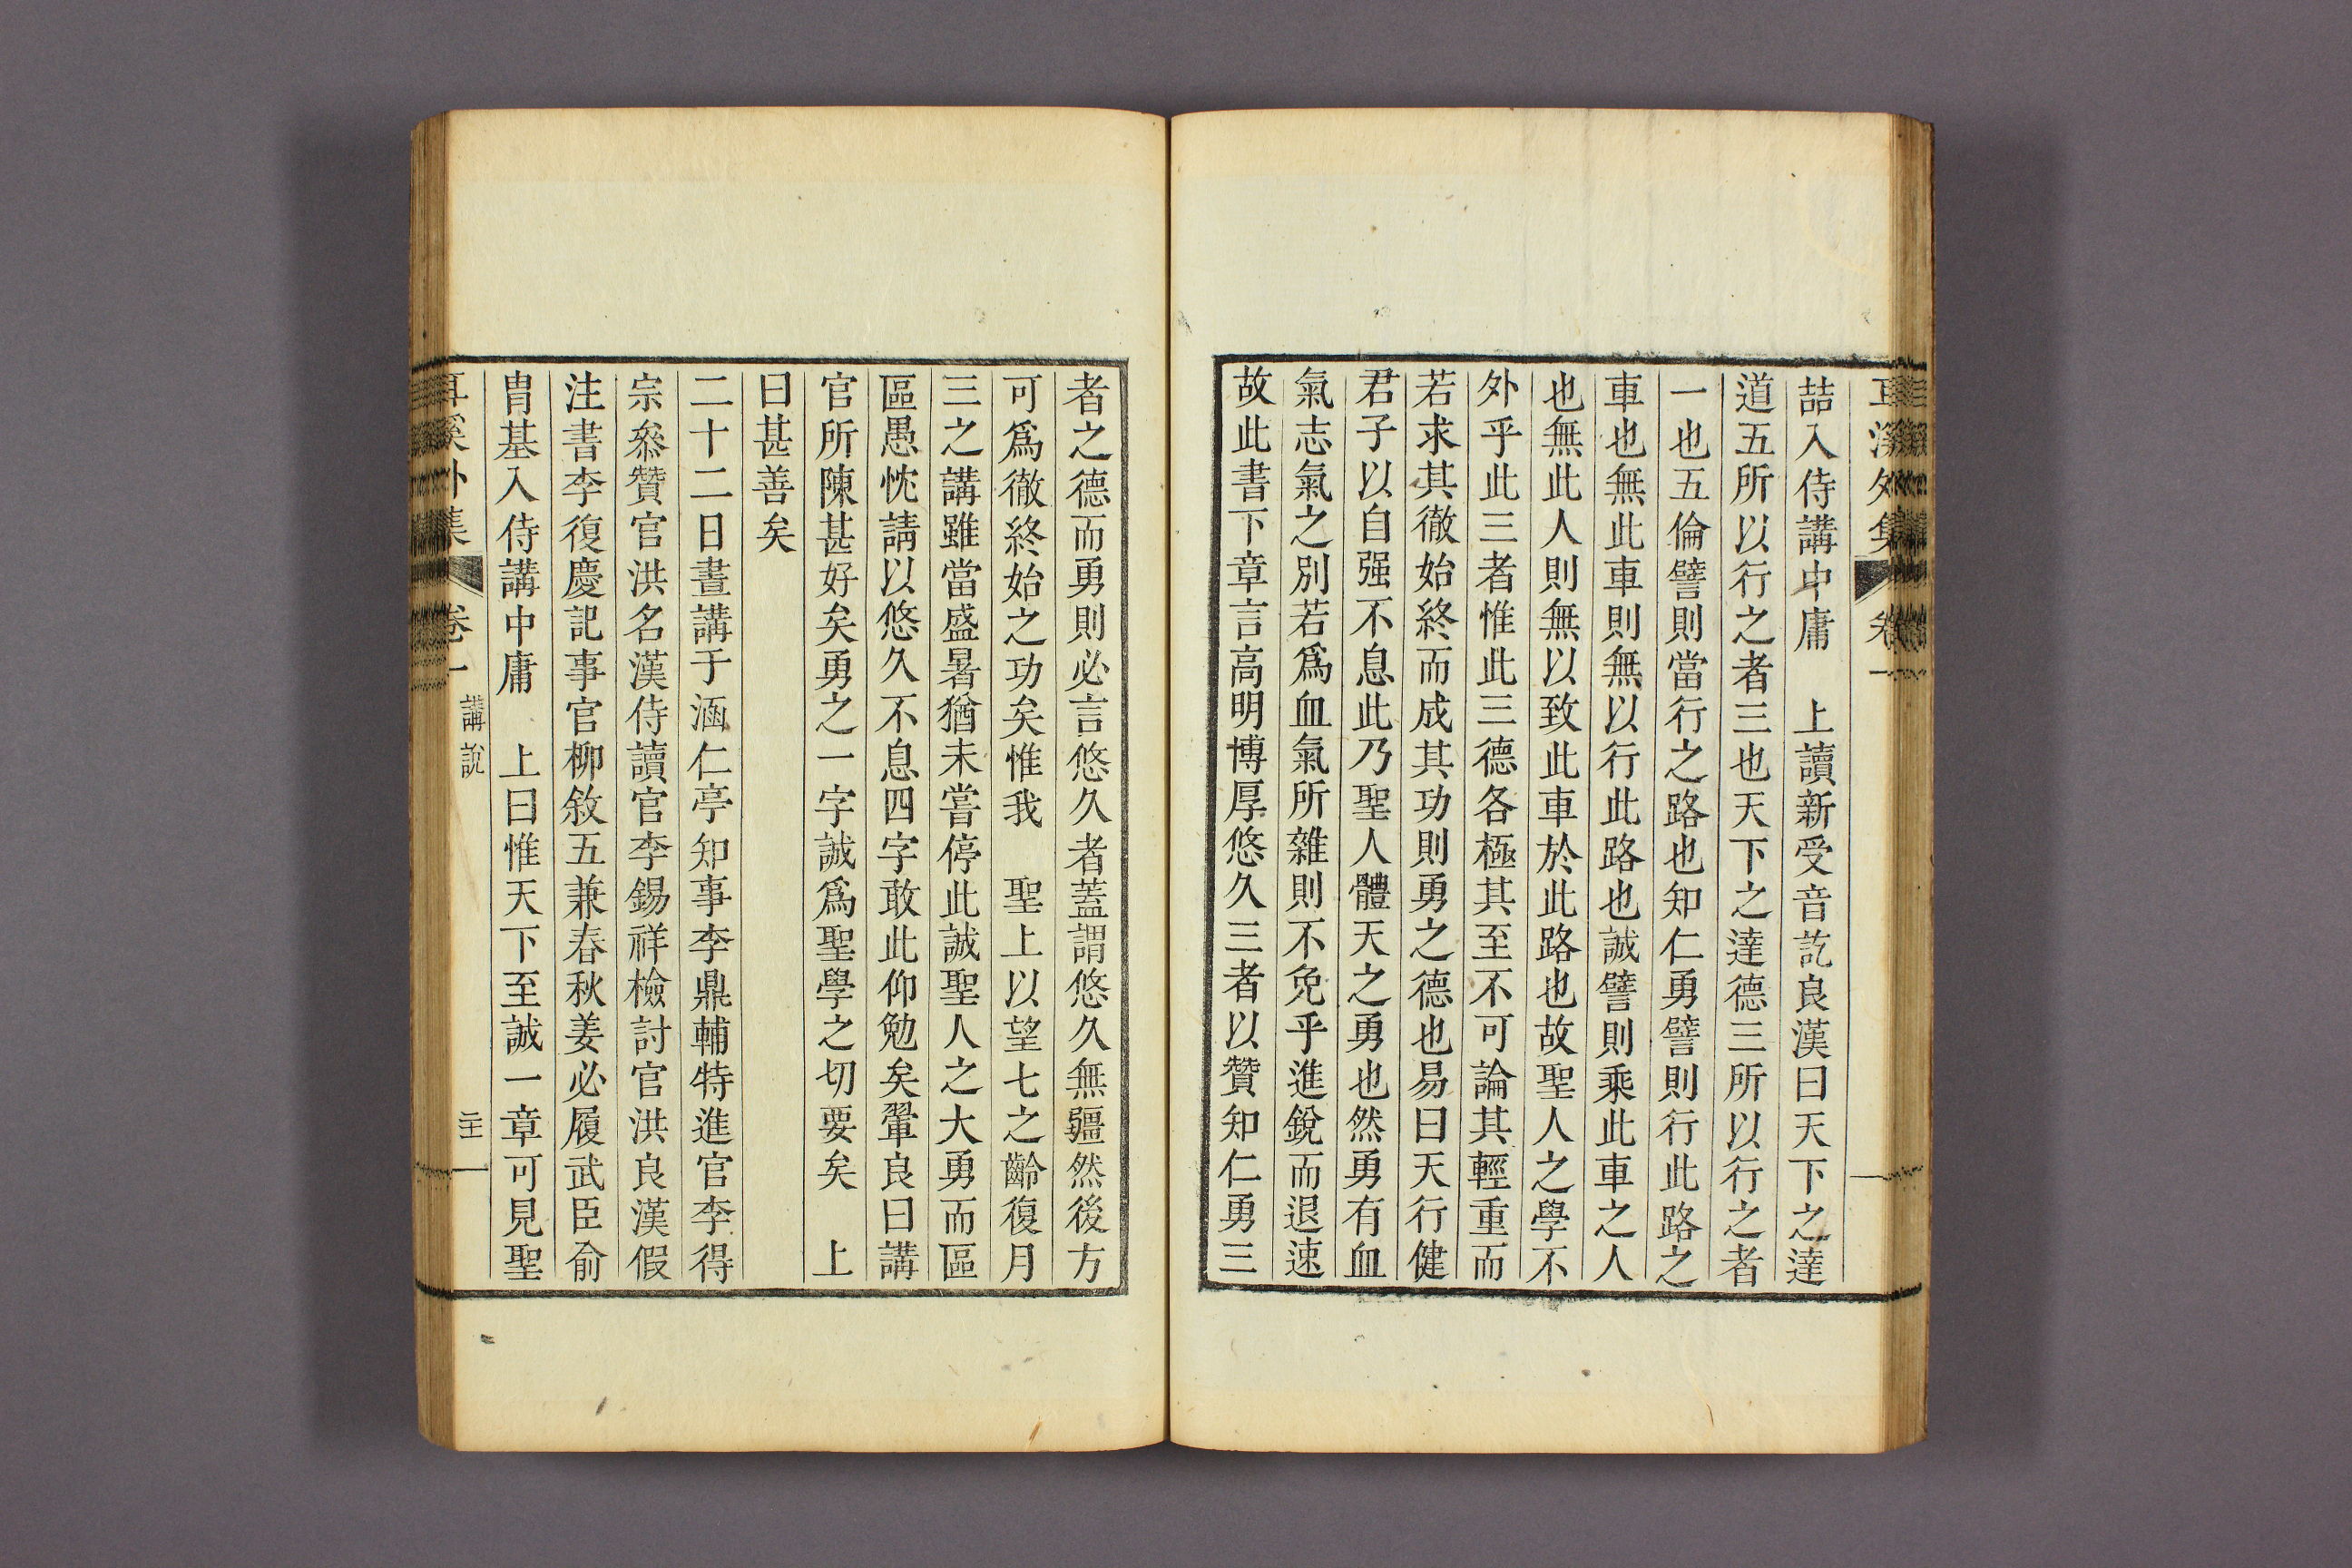 耳溪外集 卷一
喆入侍講中庸　上讀新受音訖良漢曰天下之達
道五所以行之者三也天下之達德三所以行之者
一也五倫譬則當行之路也知仁勇譬則行此路之
車也無此車則無以行此路也誠譬則乘此車之人
也無此人則無以致此車於此路也故聖人之學不
外乎此三者惟此三德各極其至不可論其輕重而
若求其徹始終而成其功則勇之德也易曰天行健
君子以自强不息此乃聖人體天之勇也然勇有血
氣志氣之別若爲血氣所雜則不免乎進銳而退速
故此書下章言高明博厚悠久三者以贊知仁勇三
者之德而勇則必言悠久者蓋謂悠久無疆然後方
可爲徹終始之功矣惟我　聖上以望七之齡復月
三之講雖當盛暑猶未嘗停此誠聖人之大勇而區
區愚忱請以悠久不息四字敢此仰勉矣翬良曰講
官所陳甚好矣勇之一字誠爲聖學之切要矣　上
曰甚善矣
二十二日晝講于涵仁亭知事李鼎輔特進官李得
宗叅贊官洪名漢侍讀官李錫祥檢討官洪良漢假
注書李復慶記事官柳敘五兼春秋姜必履武臣俞
胄基入侍講中庸　上曰惟天下至誠一章可見聖
耳溪外集 卷一 講說 二十一